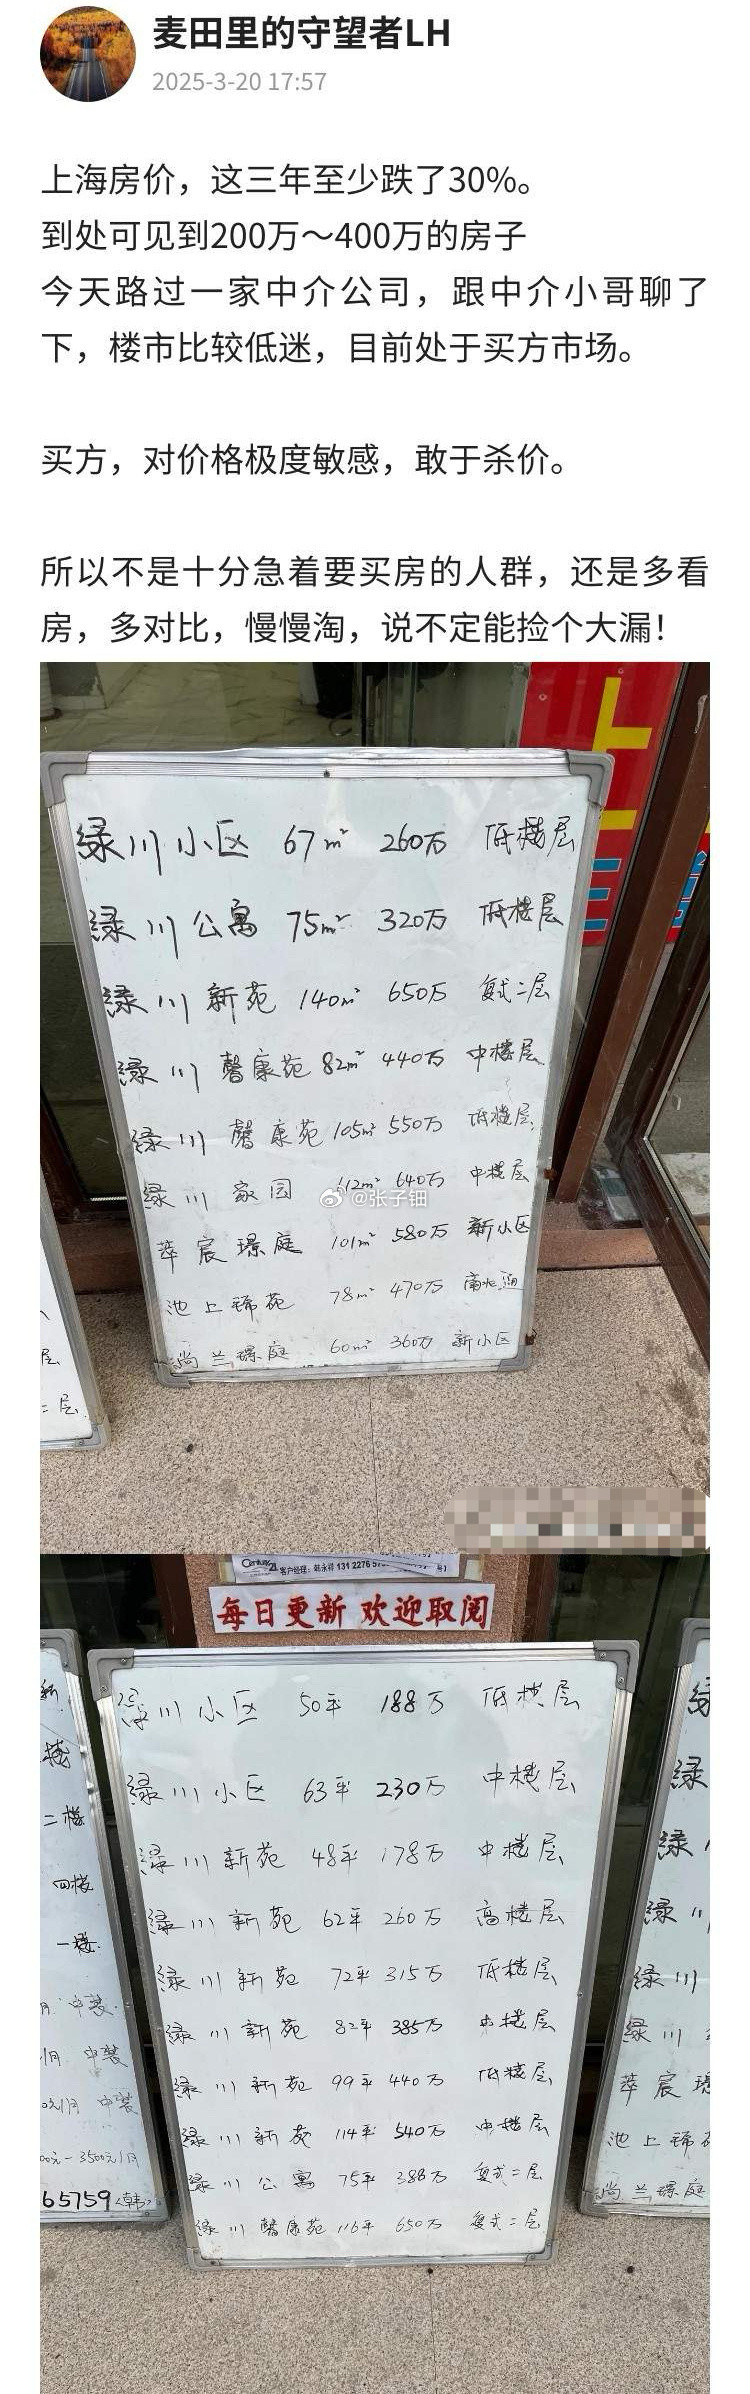 麦田里的守望者LH
2025-3-20 17:57
上海房价，这三年至少跌了30%。
到处可见到200万～400万的房子
今天路过一家中介公司，跟中介小哥聊了
下，楼市比较低迷，目前处于买方市场。
买方，对价格极度敏感，敢于杀价。
所以不是十分急着要买房的人群，还是多看
房，多对比，慢慢淘，说不定能捡个大漏！
绿川小区 67m² 260万 低楼层
绿川公寓 75m² 320万 低楼层
绿川新苑 140m² 650万 复式二层
绿川馨康苑 82m² 440万 中楼层
绿川馨康苑 105m² 550万 低楼层
绿川家园 112m² 640万 中楼层
@张子钿
萃宸璟庭 101m² 580万 新小区
池上锦苑 78m² 470万 南北通
尚兰璟庭 60m² 360万 新小区
层
二层
Century 21
客户经理：韩永祥 131 2276
每日更新 欢迎取阅
绿川小区 50平 188万 低楼层
绿川小区 63平 230万 中楼层
绿川新苑 48平 178万 中楼层
绿川新苑 62平 260万 高楼层
绿川新苑 72平 315万 低楼层
绿川新苑 82平 385万 中楼层
绿川新苑 99平 440万 低楼层
绿川新苑 114平 540万 中楼层
绿川公寓 75平 388万 复式二层
绿川馨康苑 116平 650万 复式二层
楼
二楼
四楼
一楼
月 中装
/月 中装
0元/月 中装
00元-3500元/月
65759(韩)
绿
绿
绿
绿川
绿川
绿川
萃宸璟
池上锦
尚兰璟庭